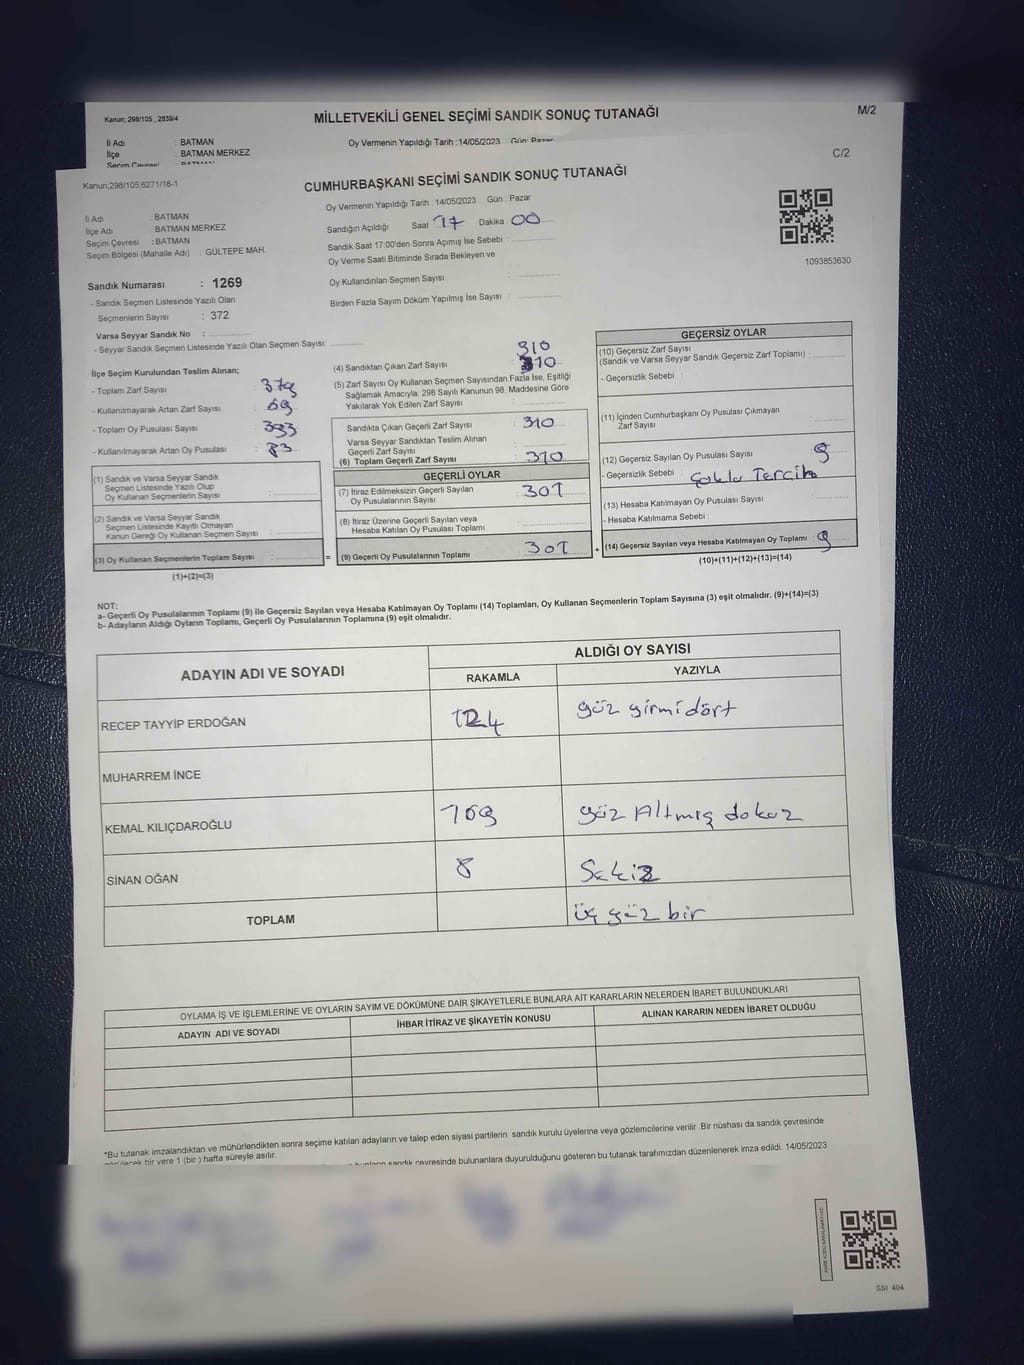 Kanun; 298/105 , 2839/4
MİLLETVEKİLİ GENEL SEÇİMİ SANDIK SONUÇ TUTANAĞI
M/2
İl Adı : BATMAN
Oy Vermenin Yapıldığı Tarih :14/05/2023 Gün: Pazar
İlçe : BATMAN MERKEZ
Seçim Çevresi : BATMAN
C/2
Kanun;298/105;6271/18-1
CUMHURBAŞKANI SEÇİMİ SANDIK SONUÇ TUTANAĞI
Oy Vermenin Yapıldığı Tarih : 14/05/2023 Gün : Pazar
İl Adı : BATMAN
İlçe Adı : BATMAN MERKEZ
Seçim Çevresi : BATMAN
Seçim Bölgesi (Mahalle Adı) : GÜLTEPE MAH.
Sandığın Açıldığı Saat 17 Dakika : 00
Sandık Saat 17:00'den Sonra Açımış İse Sebebi :
Oy Verme Saati Bitiminde Sırada Bekleyen ve
Oy Kullandırılan Seçmen Sayısı :
Birden Fazla Sayım Döküm Yapılmış İse Sayısı :
1093853630
Sandık Numarası : 1269
- Sandık Seçmen Listesinde Yazılı Olan
Seçmenlerin Sayısı : 372
Varsa Seyyar Sandık No :
- Seyyar Sandık Seçmen Listesinde Yazılı Olan Seçmen Sayısı:
İlçe Seçim Kurulundan Teslim Alınan;
- Toplam Zarf Sayısı : 379
- Kullanılmayarak Artan Zarf Sayısı : 69
- Toplam Oy Pusulası Sayısı : 393
- Kullanılmayarak Artan Oy Pusulası : 83
(1) Sandık ve Varsa Seyyar Sandık
Seçmen Listesinde Yazılı Olup
Oy Kullanan Seçmenlerin Sayısı :
(2) Sandık ve Varsa Seyyar Sandık
Seçmen Listesinde Kayıtlı Olmayan
Kanun Gereği Oy Kullanan Seçmen Sayısı :
(3) Oy Kullanan Seçmenlerin Toplam Sayısı :
(1)+(2)=(3)
310
(4) Sandıktan Çıkan Zarf Sayısı : 310
(5) Zarf Sayısı Oy Kullanan Seçmen Sayısından Fazla İse, Eşitliği
Sağlamak Amacıyla; 298 Sayılı Kanunun 98. Maddesine Göre
Yakılarak Yok Edilen Zarf Sayısı :
Sandıkta Çıkan Geçerli Zarf Sayısı : 310
Varsa Seyyar Sandıktan Teslim Alınan
Geçerli Zarf Sayısı :
(6) Toplam Geçerli Zarf Sayısı : 310
GEÇERLİ OYLAR
(7) İtiraz Edilmeksizin Geçerli Sayılan
Oy Pusulalarının Sayısı : 301
(8) İtiraz Üzerine Geçerli Sayılan veya
Hesaba Katılan Oy Pusulası Toplamı :
=
(9) Geçerli Oy Pusulalarının Toplamı : 301
+
GEÇERSİZ OYLAR
(10) Geçersiz Zarf Sayısı
(Sandık ve Varsa Seyyar Sandık Geçersiz Zarf Toplamı) :
- Geçersizlik Sebebi :
(11) İçinden Cumhurbaşkanı Oy Pusulası Çıkmayan
Zarf Sayısı :
(12) Geçersiz Sayılan Oy Pusulası Sayısı : 9
- Geçersizlik Sebebi : Çoklu Tercih
(13) Hesaba Katılmayan Oy Pusulası Sayısı :
- Hesaba Katılmama Sebebi :
(14) Geçersiz Sayılan veya Hesaba Katılmayan Oy Toplamı : 9
(10)+(11)+(12)+(13)=(14)
NOT:
a- Geçerli Oy Pusulalarının Toplamı (9) ile Geçersiz Sayılan veya Hesaba Katılmayan Oy Toplamı (14) Toplamları, Oy Kullanan Seçmenlerin Toplam Sayısına (3) eşit olmalıdır. (9)+(14)=(3)
b- Adayların Aldığı Oyların Toplamı, Geçerli Oy Pusulalarının Toplamına (9) eşit olmalıdır.
ADAYIN ADI VE SOYADI
ALDIĞI OY SAYISI
RAKAMLA
YAZIYLA
RECEP TAYYİP ERDOĞAN 124 yüz yirmidört
MUHARREM İNCE
KEMAL KILIÇDAROĞLU 169 yüz Altmış dokuz
SİNAN OĞAN 8 Sekiz
TOPLAM üç yüz bir
OYLAMA İŞ VE İŞLEMLERİNE VE OYLARIN SAYIM VE DÖKÜMÜNE DAİR ŞİKAYETLERLE BUNLARA AİT KARARLARIN NELERDEN İBARET BULUNDUKLARI
ADAYIN ADI VE SOYADI
İHBAR İTİRAZ VE ŞİKAYETİN KONUSU
ALINAN KARARIN NEDEN İBARET OLDUĞU
*Bu tutanak imzalandıktan ve mühürlendikten sonra seçime katılan adayların ve talep eden siyasi partilerin sandık kurulu üyelerine veya gözlemcilerine verilir .Bir nüshası da sandık çevresinde
görülecek bir yere 1 (bir ) hafta süreyle asılır.
sandık çevresinde bulunanlara duyurulduğunu gösteren bu tutanak tarafımızdan düzenlenerek imza edildi. 14/05/2023
SSI 404